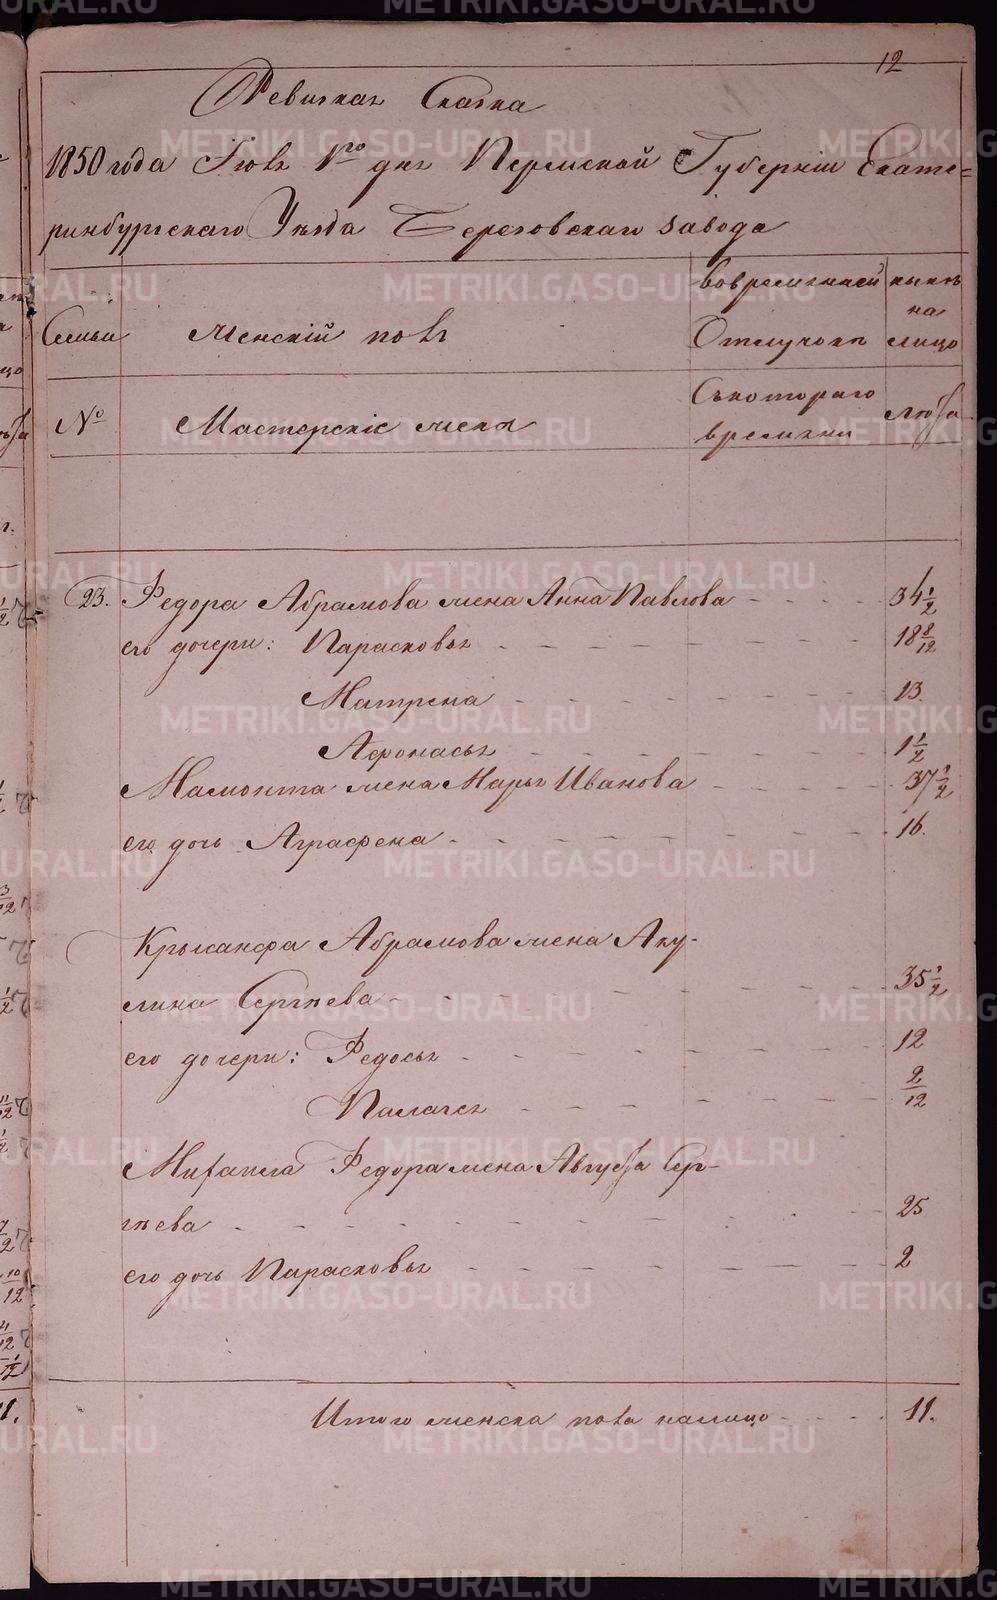 12
Ревизкая Сказка
1850 года Іюля 1го дня Пермской Губерніи Екате=
ринбургскаго Уѣзда Березовскаго завода
Семьи
Женскій полъ
Вовременной
Отлучкѣ
нынѣ
на
лицо
№
Мастерскіе жена
Съкотораго
времяни
лѣта
23. Федора Абрамова жена Анна Павлова 34 1/2
его дочери: Парасковья 18 8/12
Матрена 13
Афонасья 1 1/2
Мамонта жена Марья Иванова 37 1/2
его дочь Аграфена 16.
Крысанфа Абрамова жена Аку-
лина Сергѣева 35 1/2
его дочери: Федосья 12
Палагея 2/12
Михаила Федора жена Августа Сер-
гѣева 25
его дочь Парасковья 2
Итого женска пола налицо 11.
METRIKI.GASO-URAL.RU